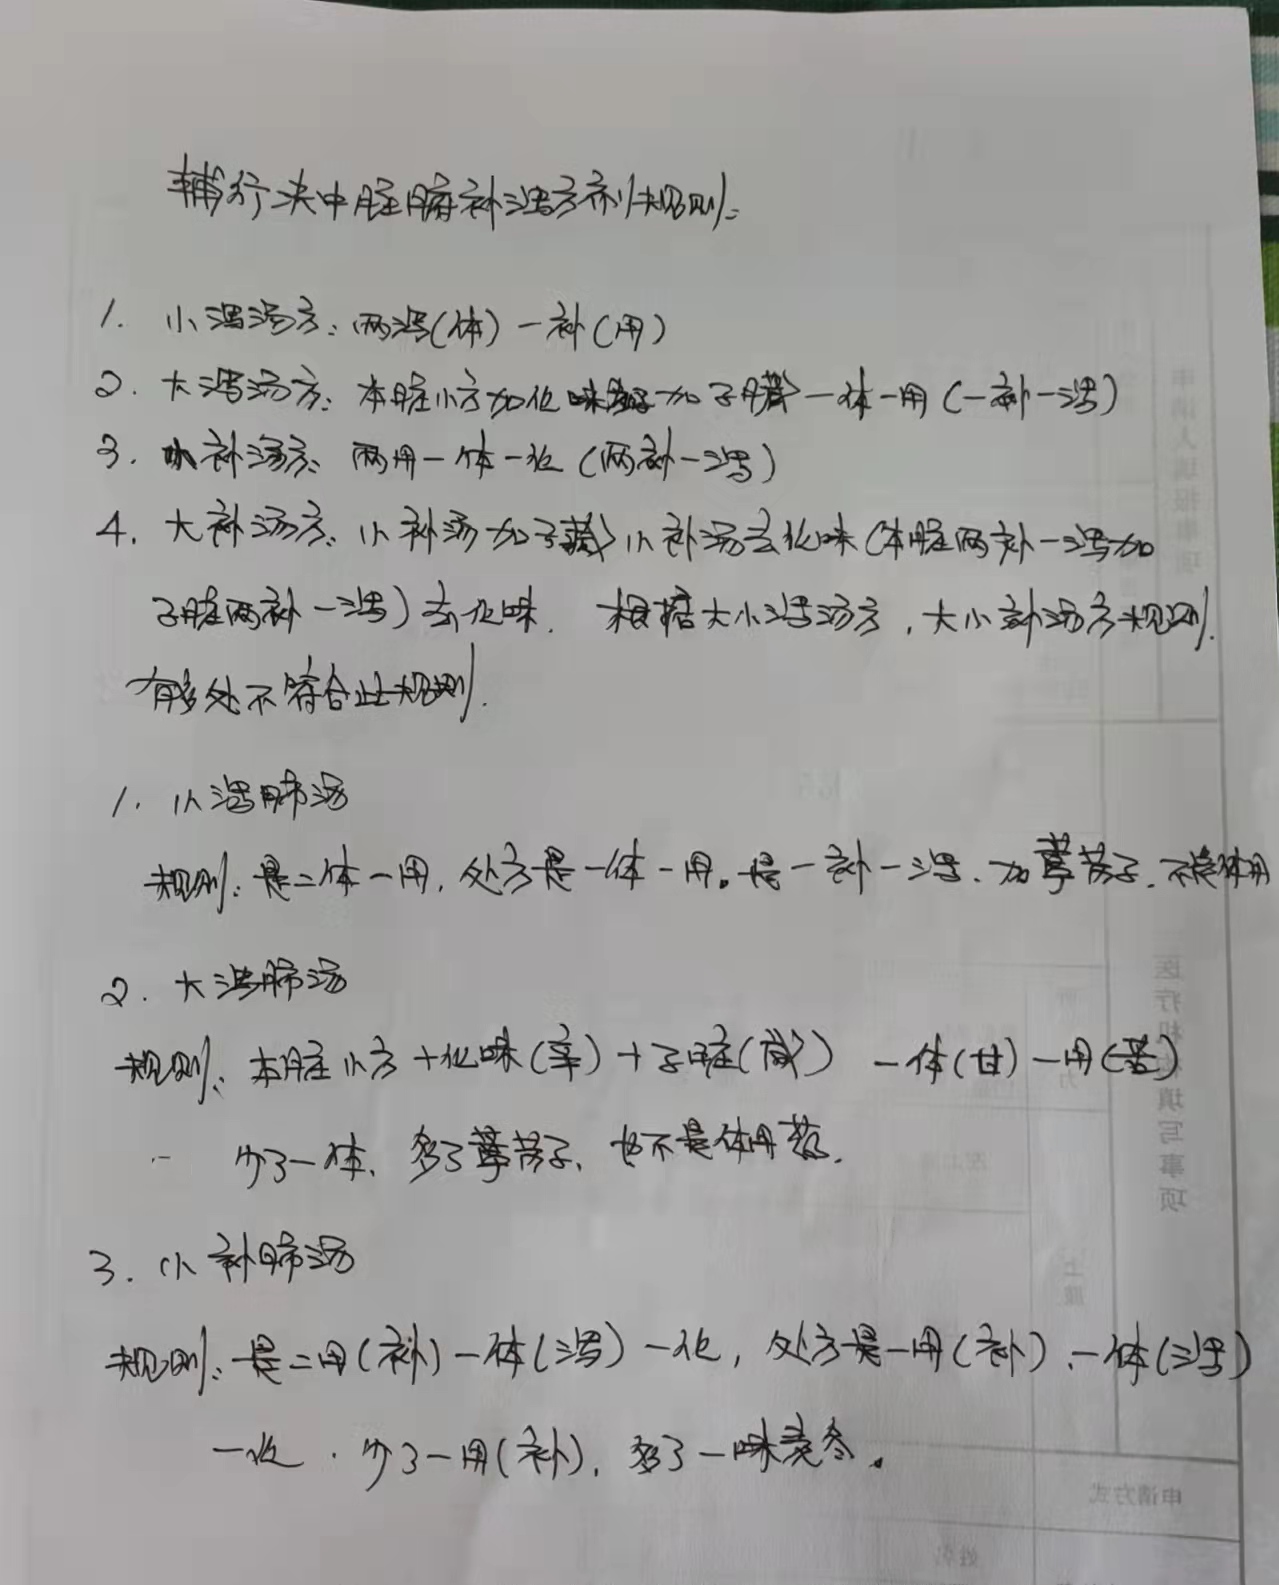 辅行决中脏腑补泻方剂规则:
1. 小泻汤方: 两泻(体)一补(用)
2. 大泻汤方: 本脏小方加化味 加子脏一体一用(一补一泻)
3. 小补汤方: 两用一体一化(两补一泻)
4. 大补汤方: 小补汤加子藏小补汤去化味(本脏两补一泻加
子脏两补一泻)去化味. 根据大小泻汤方, 大小补汤方规则.
有多处不符合此规则.
1. 小泻肺汤
规则: 是二体一用, 处方是一体一用。是一补一泻. 加葶苈子. 不是体用
2. 大泻肺汤
规则: 本脏小方+化味(辛)+子脏(咸) 一体(甘)一用(苦)
少了一体, 多了葶苈子, 也不是体用药.
3. 小补肺汤
规则: 是二用(补)一体(泻)一化, 处方是一用(补)、一体(泻)
一化. 少了一用(补), 多了一味麦冬。
申请人填报事项
医疗机构填写事项
申请方式
姓名